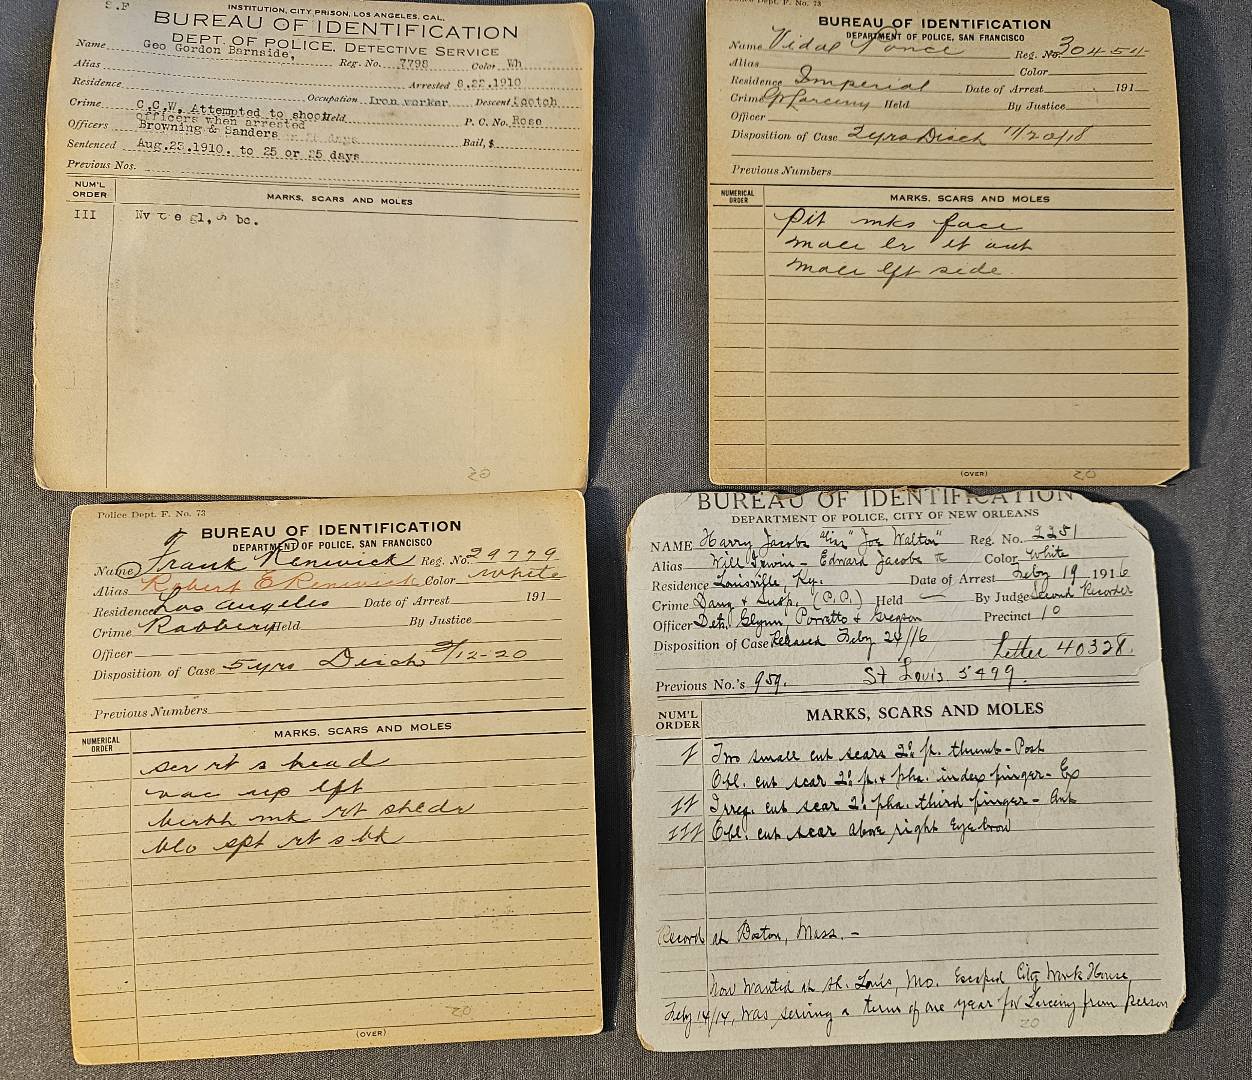 S.F
INSTITUTION, CITY PRISON, LOS ANGELES, CAL.
BUREAU OF IDENTIFICATION
DEPT. OF POLICE, DETECTIVE SERVICE
Name Geo Gordon Barnside,
Alias Reg. No. 7798 Color Wh
Residence Arrested 8.22.1910
Occupation Iron worker Descent Scotch
Crime C.C.W. Attempted to shoot Held P. C. No. Rose
officers when arrested
Officers Browning & Sanders Bail, $
Sentenced Aug.23.1910. to 25 or 25 days
Previous Nos.
NUM'L ORDER MARKS, SCARS AND MOLES
III
20
Police Dept. F. No. 73
BUREAU OF IDENTIFICATION
DEPARTMENT OF POLICE, SAN FRANCISCO
Name Vidal Ponce Reg. No. 30454
Alias Color
Residence Imperial Date of Arrest 191
Crime Gr Larceny Held By Justice
Officer
Disposition of Case 2yrs Disch 11/20/18
Previous Numbers
NUMERICAL ORDER MARKS, SCARS AND MOLES
pit mks face
mole lr
mole lft side
(OVER)
20
Police Dept. F. No. 73
BUREAU OF IDENTIFICATION
DEPARTMENT OF POLICE, SAN FRANCISCO
Name Frank Renwick Reg. No. 29779
Alias Robert E Renwick Color White
Residence Los Angeles Date of Arrest 191
Crime Robbery Held By Justice
Officer
Disposition of Case 5 yrs Disch 9/12-20
Previous Numbers
NUMERICAL ORDER MARKS, SCARS AND MOLES
scr rt s head
vac up lft
birth mk rt shldr
blo spt rt s bk
(OVER)
20
BUREAU OF IDENTIFICATION
DEPARTMENT OF POLICE, CITY OF NEW ORLEANS
NAME Harry Jacobs alias "Joe Walton" Reg. No. 2251
Alias Will Irwin - Edward Jacobs Color White
Residence Louisville, Ky. Date of Arrest Feby 19 1916
Crime Dang & Susp. (P.P.) Held — By Judge Second Recorder
Officer Dets. Glynn, Porretto & Gregson Precinct 10
Disposition of Case Released Feby 24/16
Letter 40328.
Previous No.'s 959. St Louis 5499.
NUM'L ORDER MARKS, SCARS AND MOLES
I Two small cut scars 2: p. thumb - Post
Obl. cut scar 2: p. & pha. index finger - Ex
II Irreg. cut scar 2: pha. third finger - Ant
III Obl. cut scar above right Eyebrow
Record at Boston, Mass. -
Now Wanted at St. Louis, Mo. Escaped City Work House
Feby 14/14, was serving a term of one year for Larceny from person
20